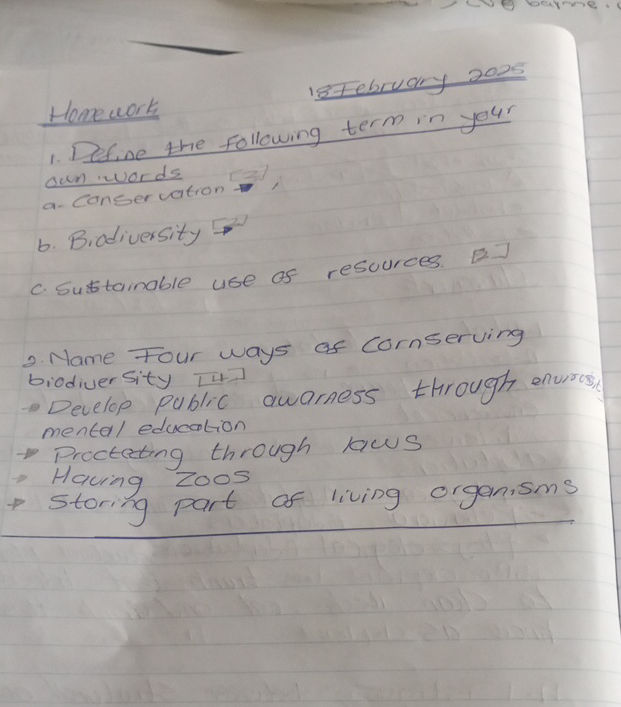 barme.
18 February 2025
Homework
1. Define the following term in your
own words
a. Conservation [2]
b. Biodiversity [2]
c. Sustainable use of resources. [2]
2. Name Four ways of Cornserving
biodiversity [4]
→ Develop Public awarness through environ
mental education
→ Procteting through laws
→ Having Zoos
→ Storing part of living organisms